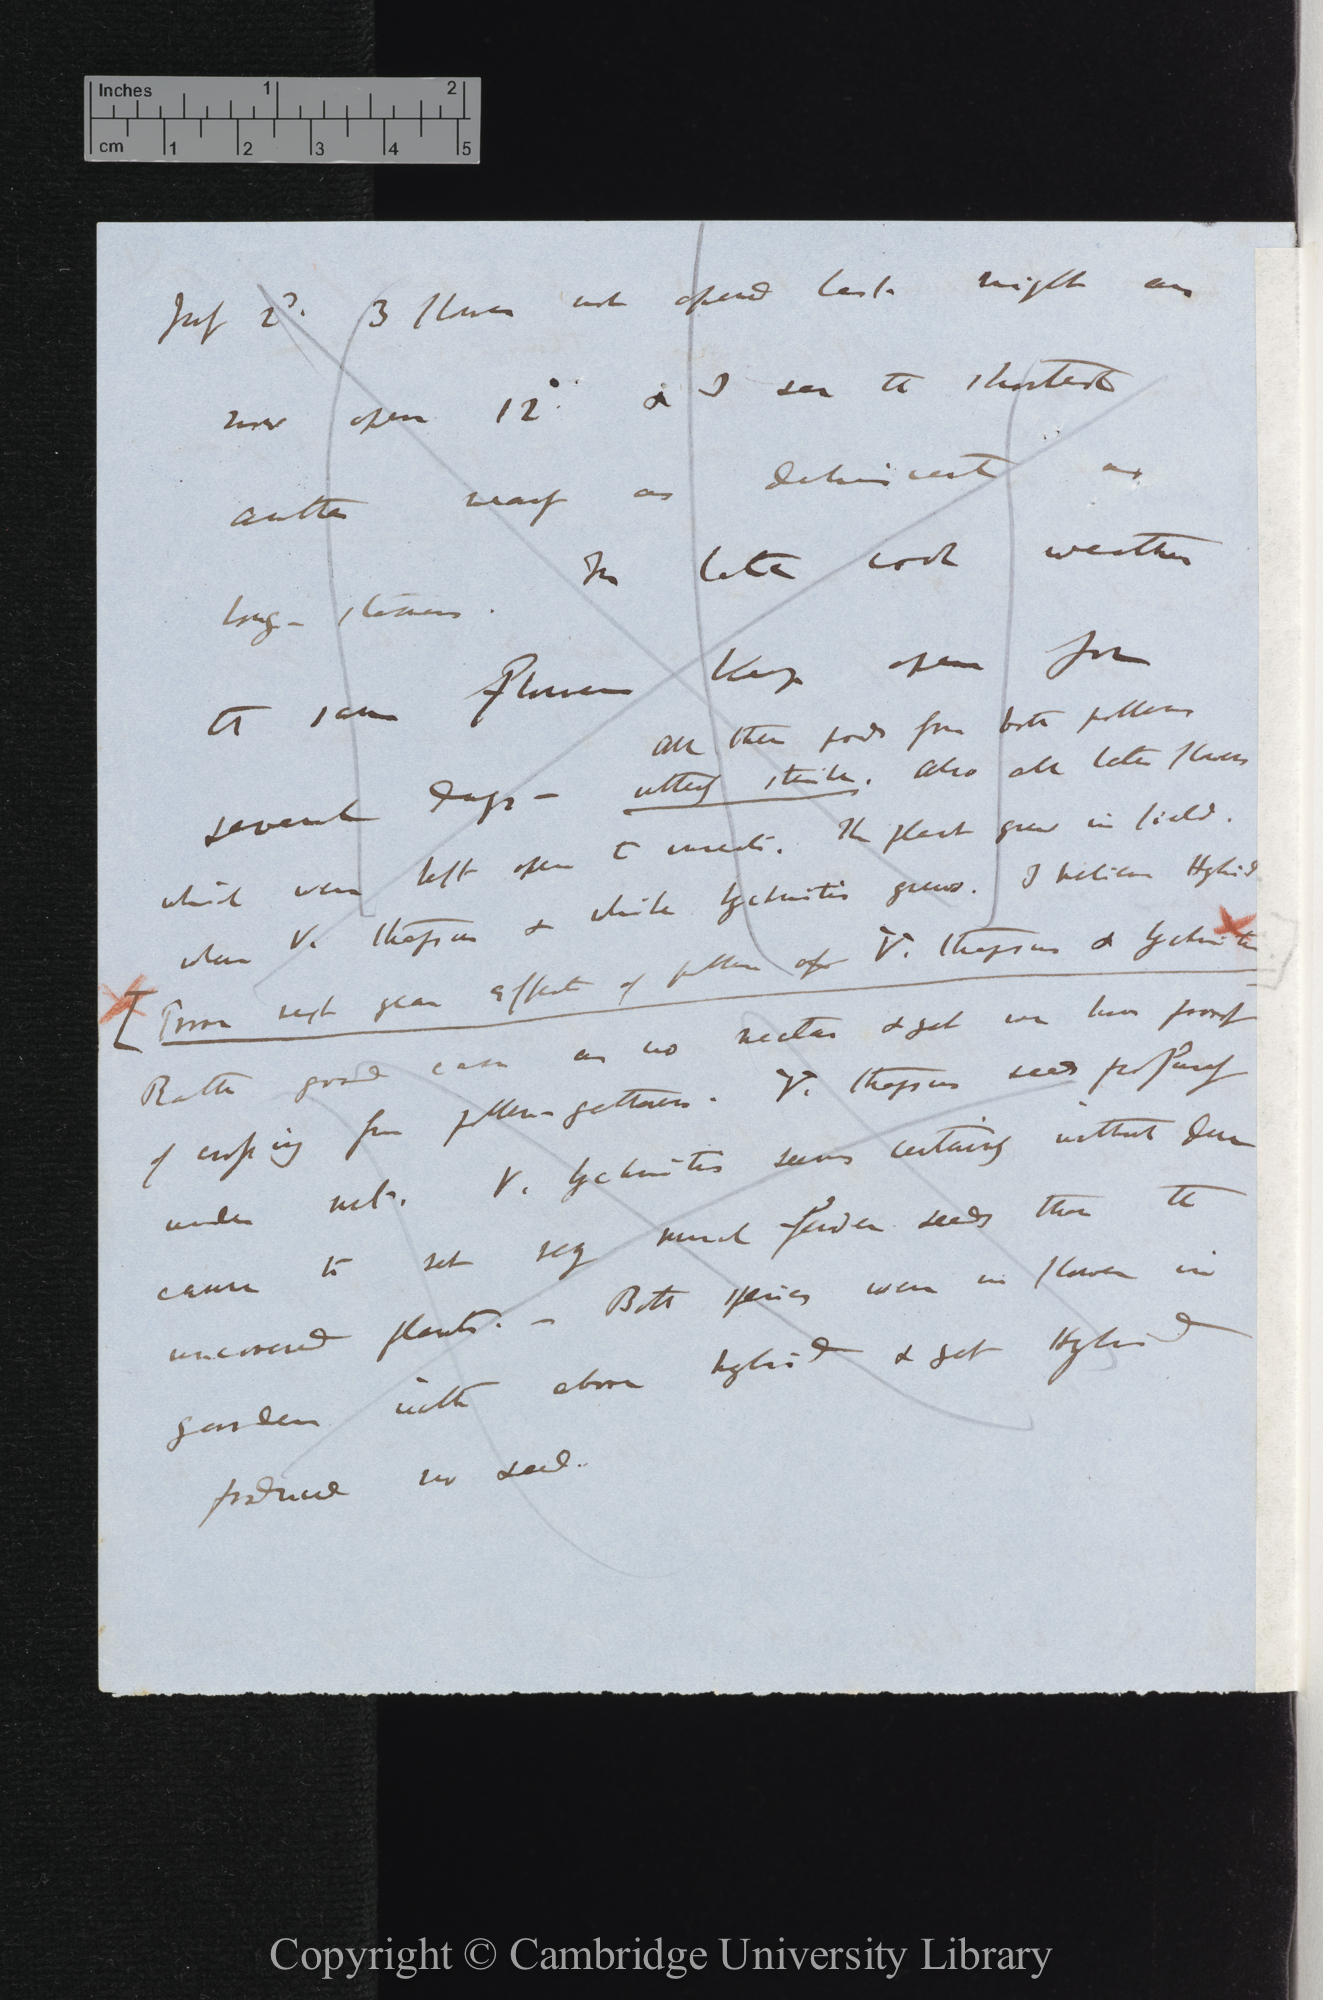 Inches 1 2
cm 1 2 3 4 5
July 2d. 3 flowers not opened last night are
now open 12° & I see the shortest
anther nearly as dehiscent as
long-stamens. In late cool weather
the same flowers keep open for
several days — all these pods from both pollens
utterly sterile. Also all later flowers
which were left open to insects. The plant grew in field.
when V. thapsus & white lychnitis grew. I believe Hybrid
[Prove next year effects of pollen of V. thapsus & lychnitis]
Rather good case as no nectar & yet we have proof
of crossing from pollen-gatherers. V. thapsus seeds profusely
under net. V. lychnitis seems certainly without
cause to set very much fewer seeds than the
uncovered plants. — Both species were in flower in
garden with above hybrid & yet Hybrid
produced no seed.
Copyright © Cambridge University Library